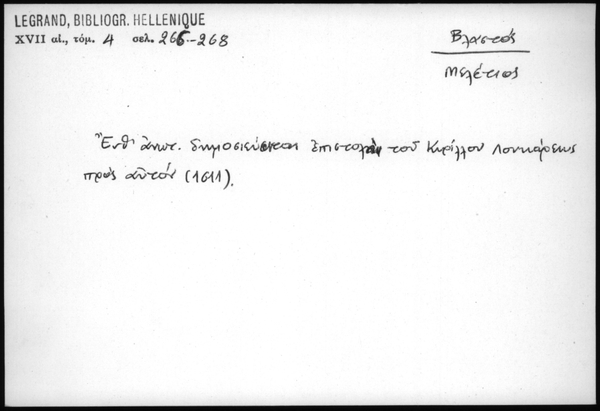 LEGRAND, BIBLIOGR. HELLENIQUE
XVII αἰ., τόμ. 4 σελ. 265-268
Βλαστός
Μελέτιος
Ἔνθ' ἀνωτ. δημοσιεύεται ἐπιστολὴ τοῦ Κυρίλλου Λουκάρεως
πρὸς αὐτόν (1611).